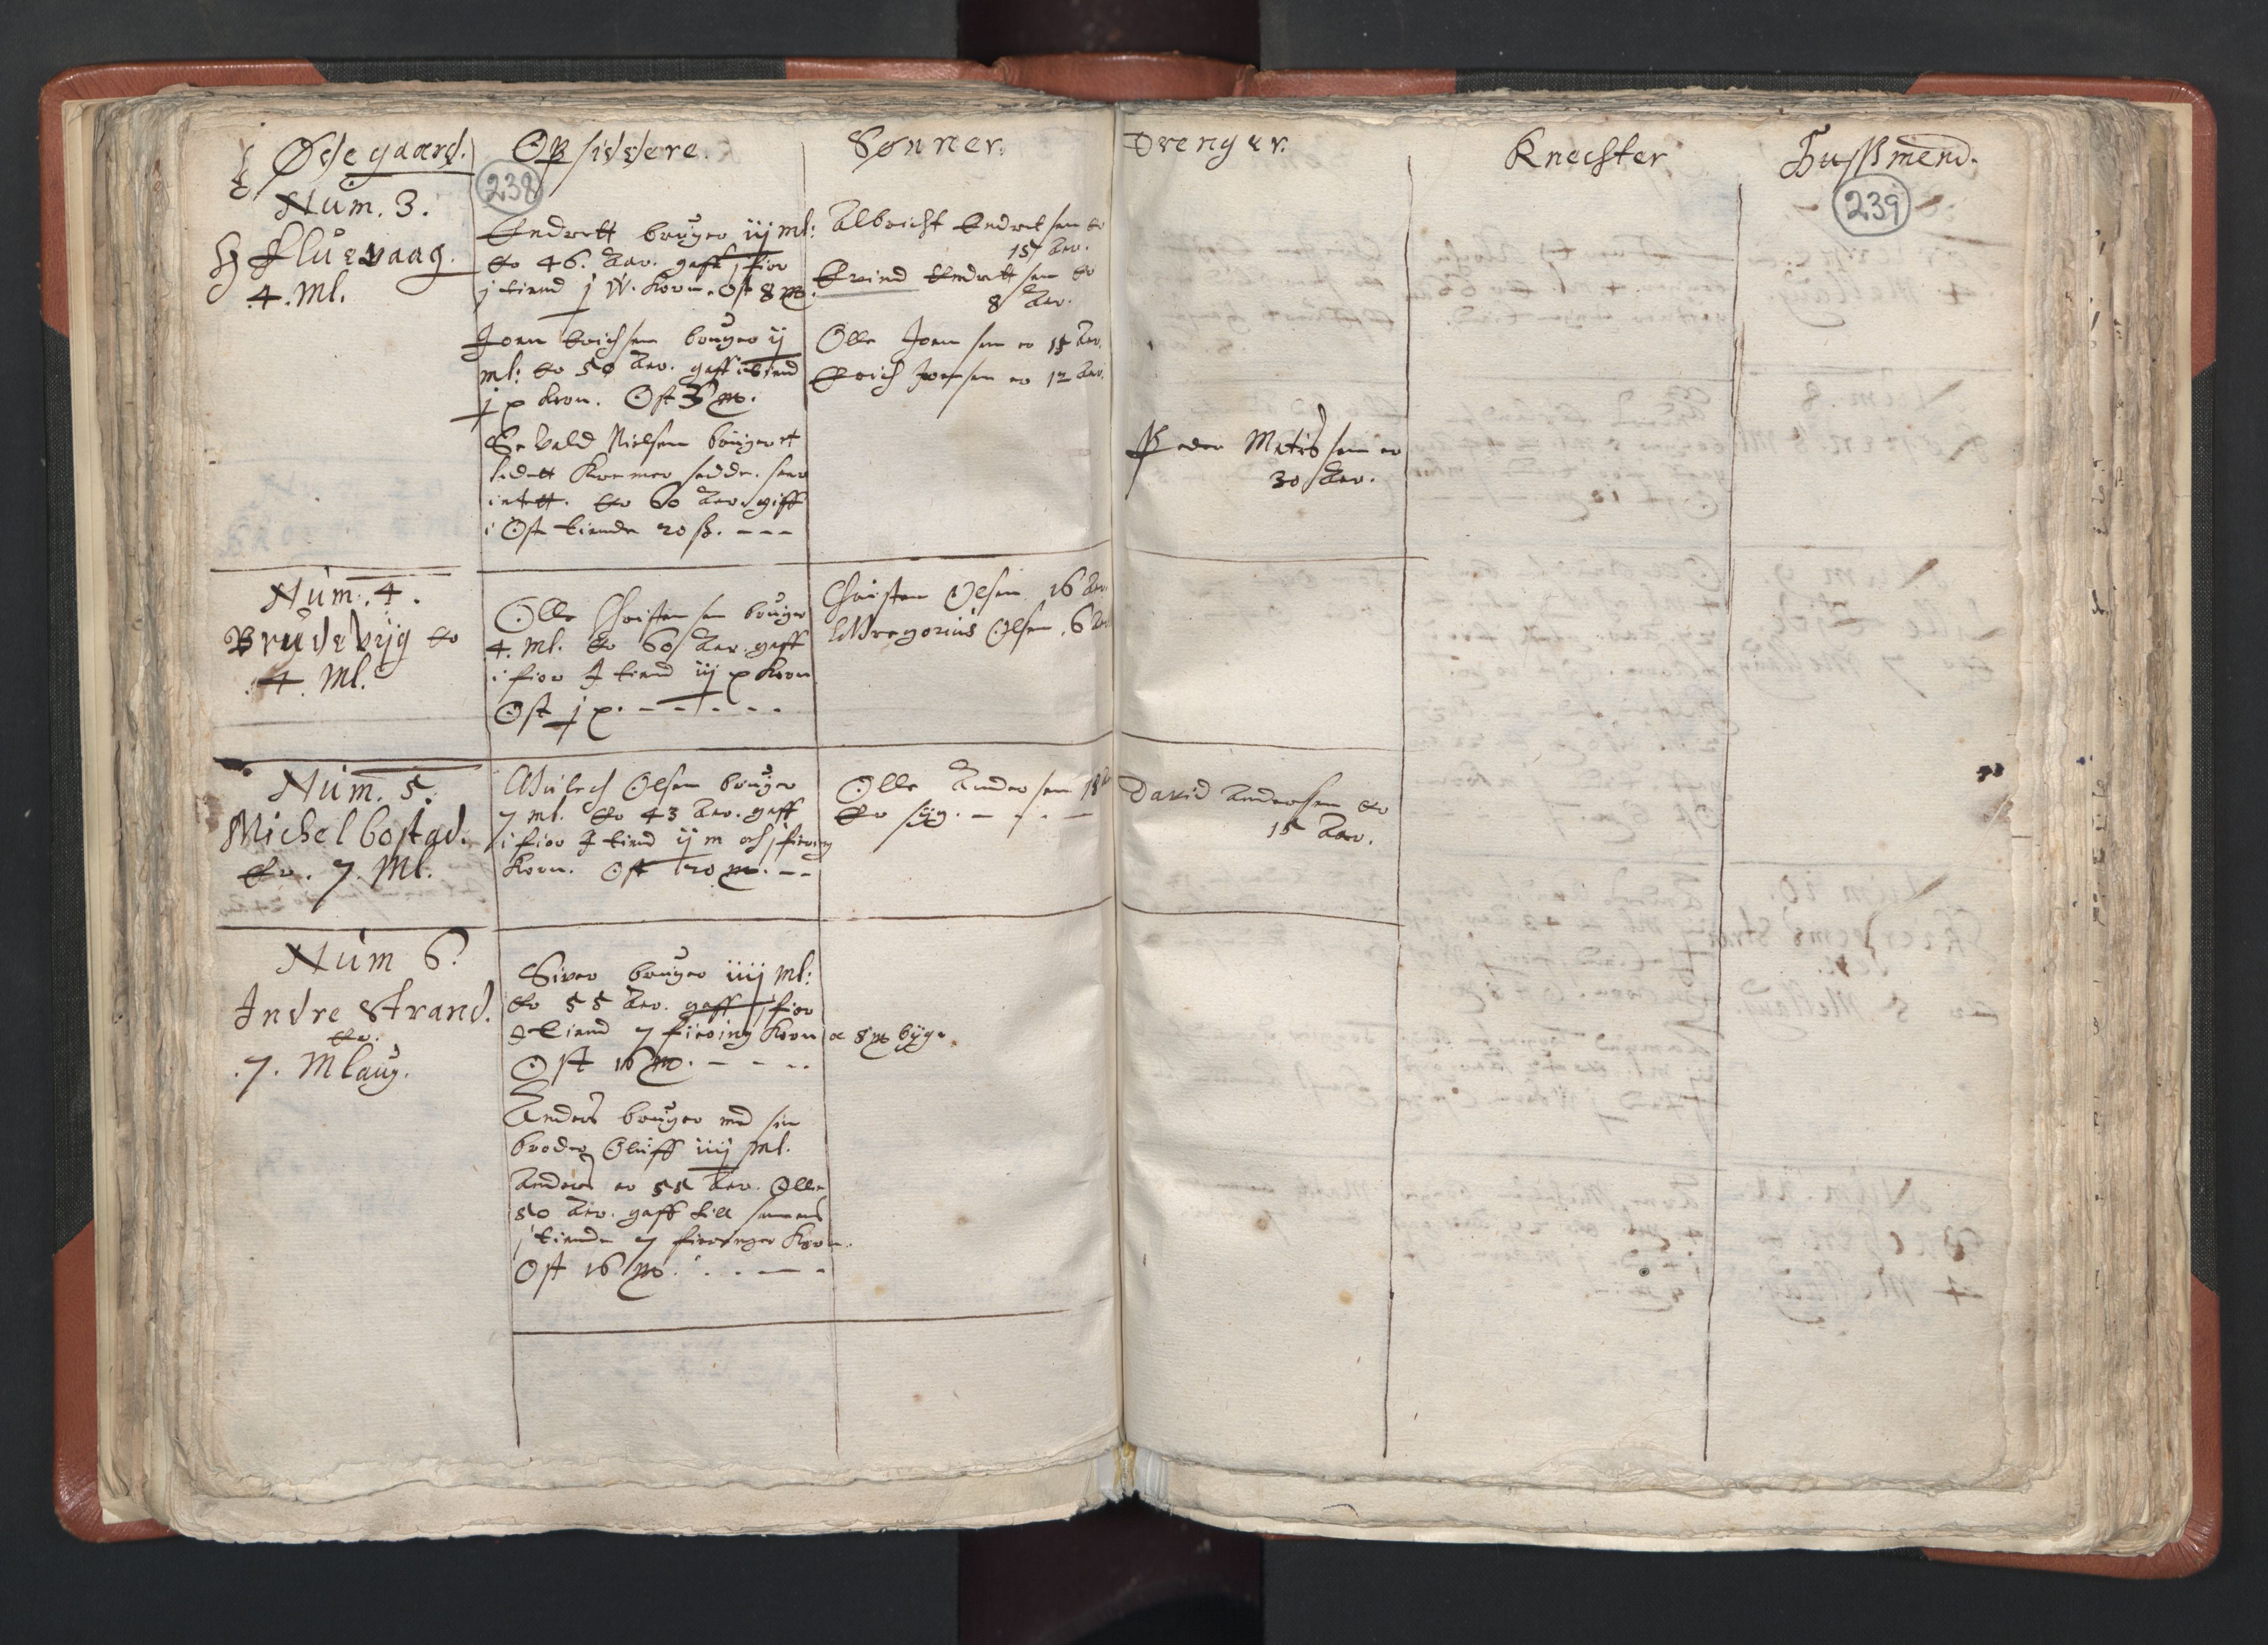 Ødegaard.
Opsiddere.
Sønner.
Drenger.
Knechter
Hussmend.
238
239
Num. 3.
Fluevaag.
4. Ml.
Endrett bruger iij ml:
er 46. Aar. gaff i fior
j tiend j W. Korn. Ost 8 m.
Joen Erichsen bruger ij
ml: er 50 Aar. gaff i tiend
j p Korn. Ost 3 m.
Sevald Nielsen bruger et
lidett saar
intett. er 60 Aar. giff
i Ost tiende 20 ß. - - -
Albricht Endretsen er
15 Aar.
Erind Endrettsen er
8 Aar.
Olle Joensen er 15 Aar.
Erich Joensen er 12 Aar.
Peder Matissen er
30 Aar.
Num. 4.
Brudevijg er
4. Ml.
Olle Christensen bruger
4. Ml. er 60 Aar. gaff
i fior J tiend iij p Korn
Ost j p. - - - - -
Christen Olsen 16 Aar
Gregorius Olsen. 6 Aar
Num. 5.
Michelbostad.
er. 7. Ml.
Olsen bruger
7 ml. er 43 Aar. gaff
i fior J tiend ij m och j fiering
Korn. Ost 20 m. - -
Olle Andersen 18
er syg. - - - -
David Andersen er
15 Aar.
Num 6.
Indre Strand.
er.
7. Mlaug.
Siver bruger iiij Ml:
er 55 Aar. gaff i fior
J tiend 7 fiering Korn a 8 m byg.
Ost 16 m. - - - -
Anders bruger med sin
broder Oluff iiij Ml.
Anders er 55 Aar. Olle
50 Aar. gaff till sammens
j tiende 7 fieringer Korn.
Ost 16 m. - - - -